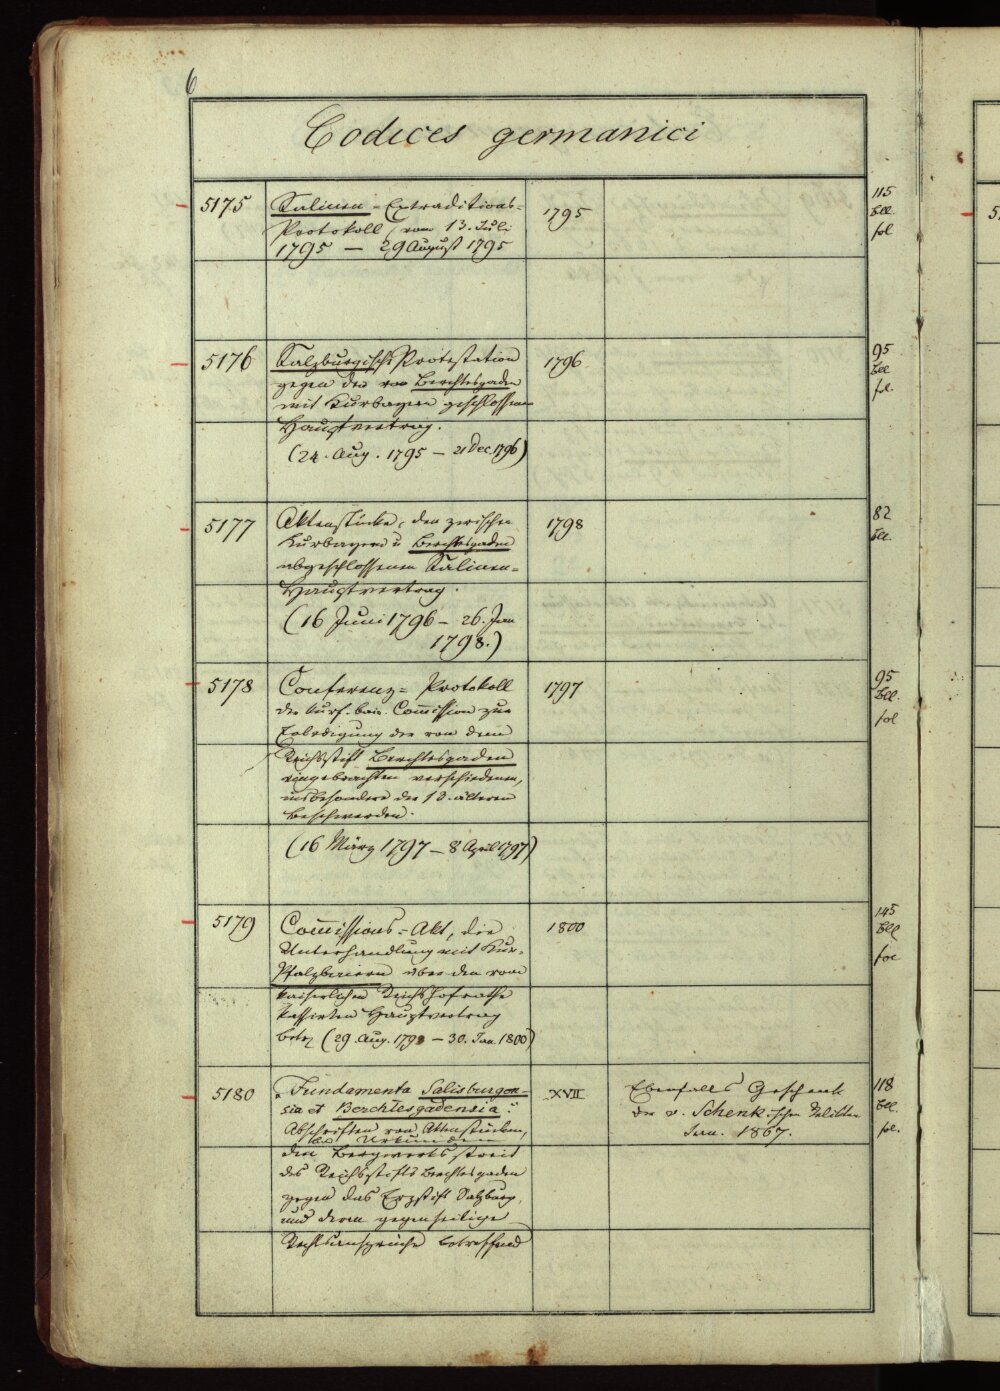 6
Codices germanici
5175 Salinen - Extraditions- 1795 115
Protokoll (vom 13. Juli Bll.
1795 — 29 August 1795 fol
5176 Salzburgische Protestation 1796 95
gegen den von Berchtesgaden Bll
mit Kurbayern geschlossenen fol.
Hauptvertrag.
(24. Aug. 1795 — 21 Dec. 1796)
5177 Aktenstücke, den zwischen 1798 82
Kurbayern u Berchtesgaden Bll.
abgeschlossenen Salinen-
Hauptvertrag.
(16 Juni 1796 — 26. Jan
1798.)
5178 Conferenz= Protokoll 1797 95
der kurf. bair. Commission zur Bll.
Erledigung der von dem fol
Reichsstift Berchtesgaden
eingebrachten verschiedenen,
insbesondere der 18. älteren
Beschwerden.
(16 März 1797 — 8 April 1797)
5179 Commissions= Akt, die 1800 145
Unterhandlung mit Kur- Bll
Pfalzbaiern über den vom fol
kaiserlichen Reichshofrathe
kassirten Hauptvertrag
betr. (29. Aug. 1798 — 30. Jan. 1800)
5180 „Fundamenta Salisburgen- XVII Ebenfalls Geschenk 118
sia et Berchtesgadensia“: der v. Schenk'schen Relikten Bll.
Abschriften von Aktenstücken, Jan. 1867. fol.
Urkunden
den Bergwerksstreit
des Reichsstifts Berchtesgaden
gegen das Erzstift Salzburg,
und deren gegenseitige
Rechtsansprüche betreffend
5